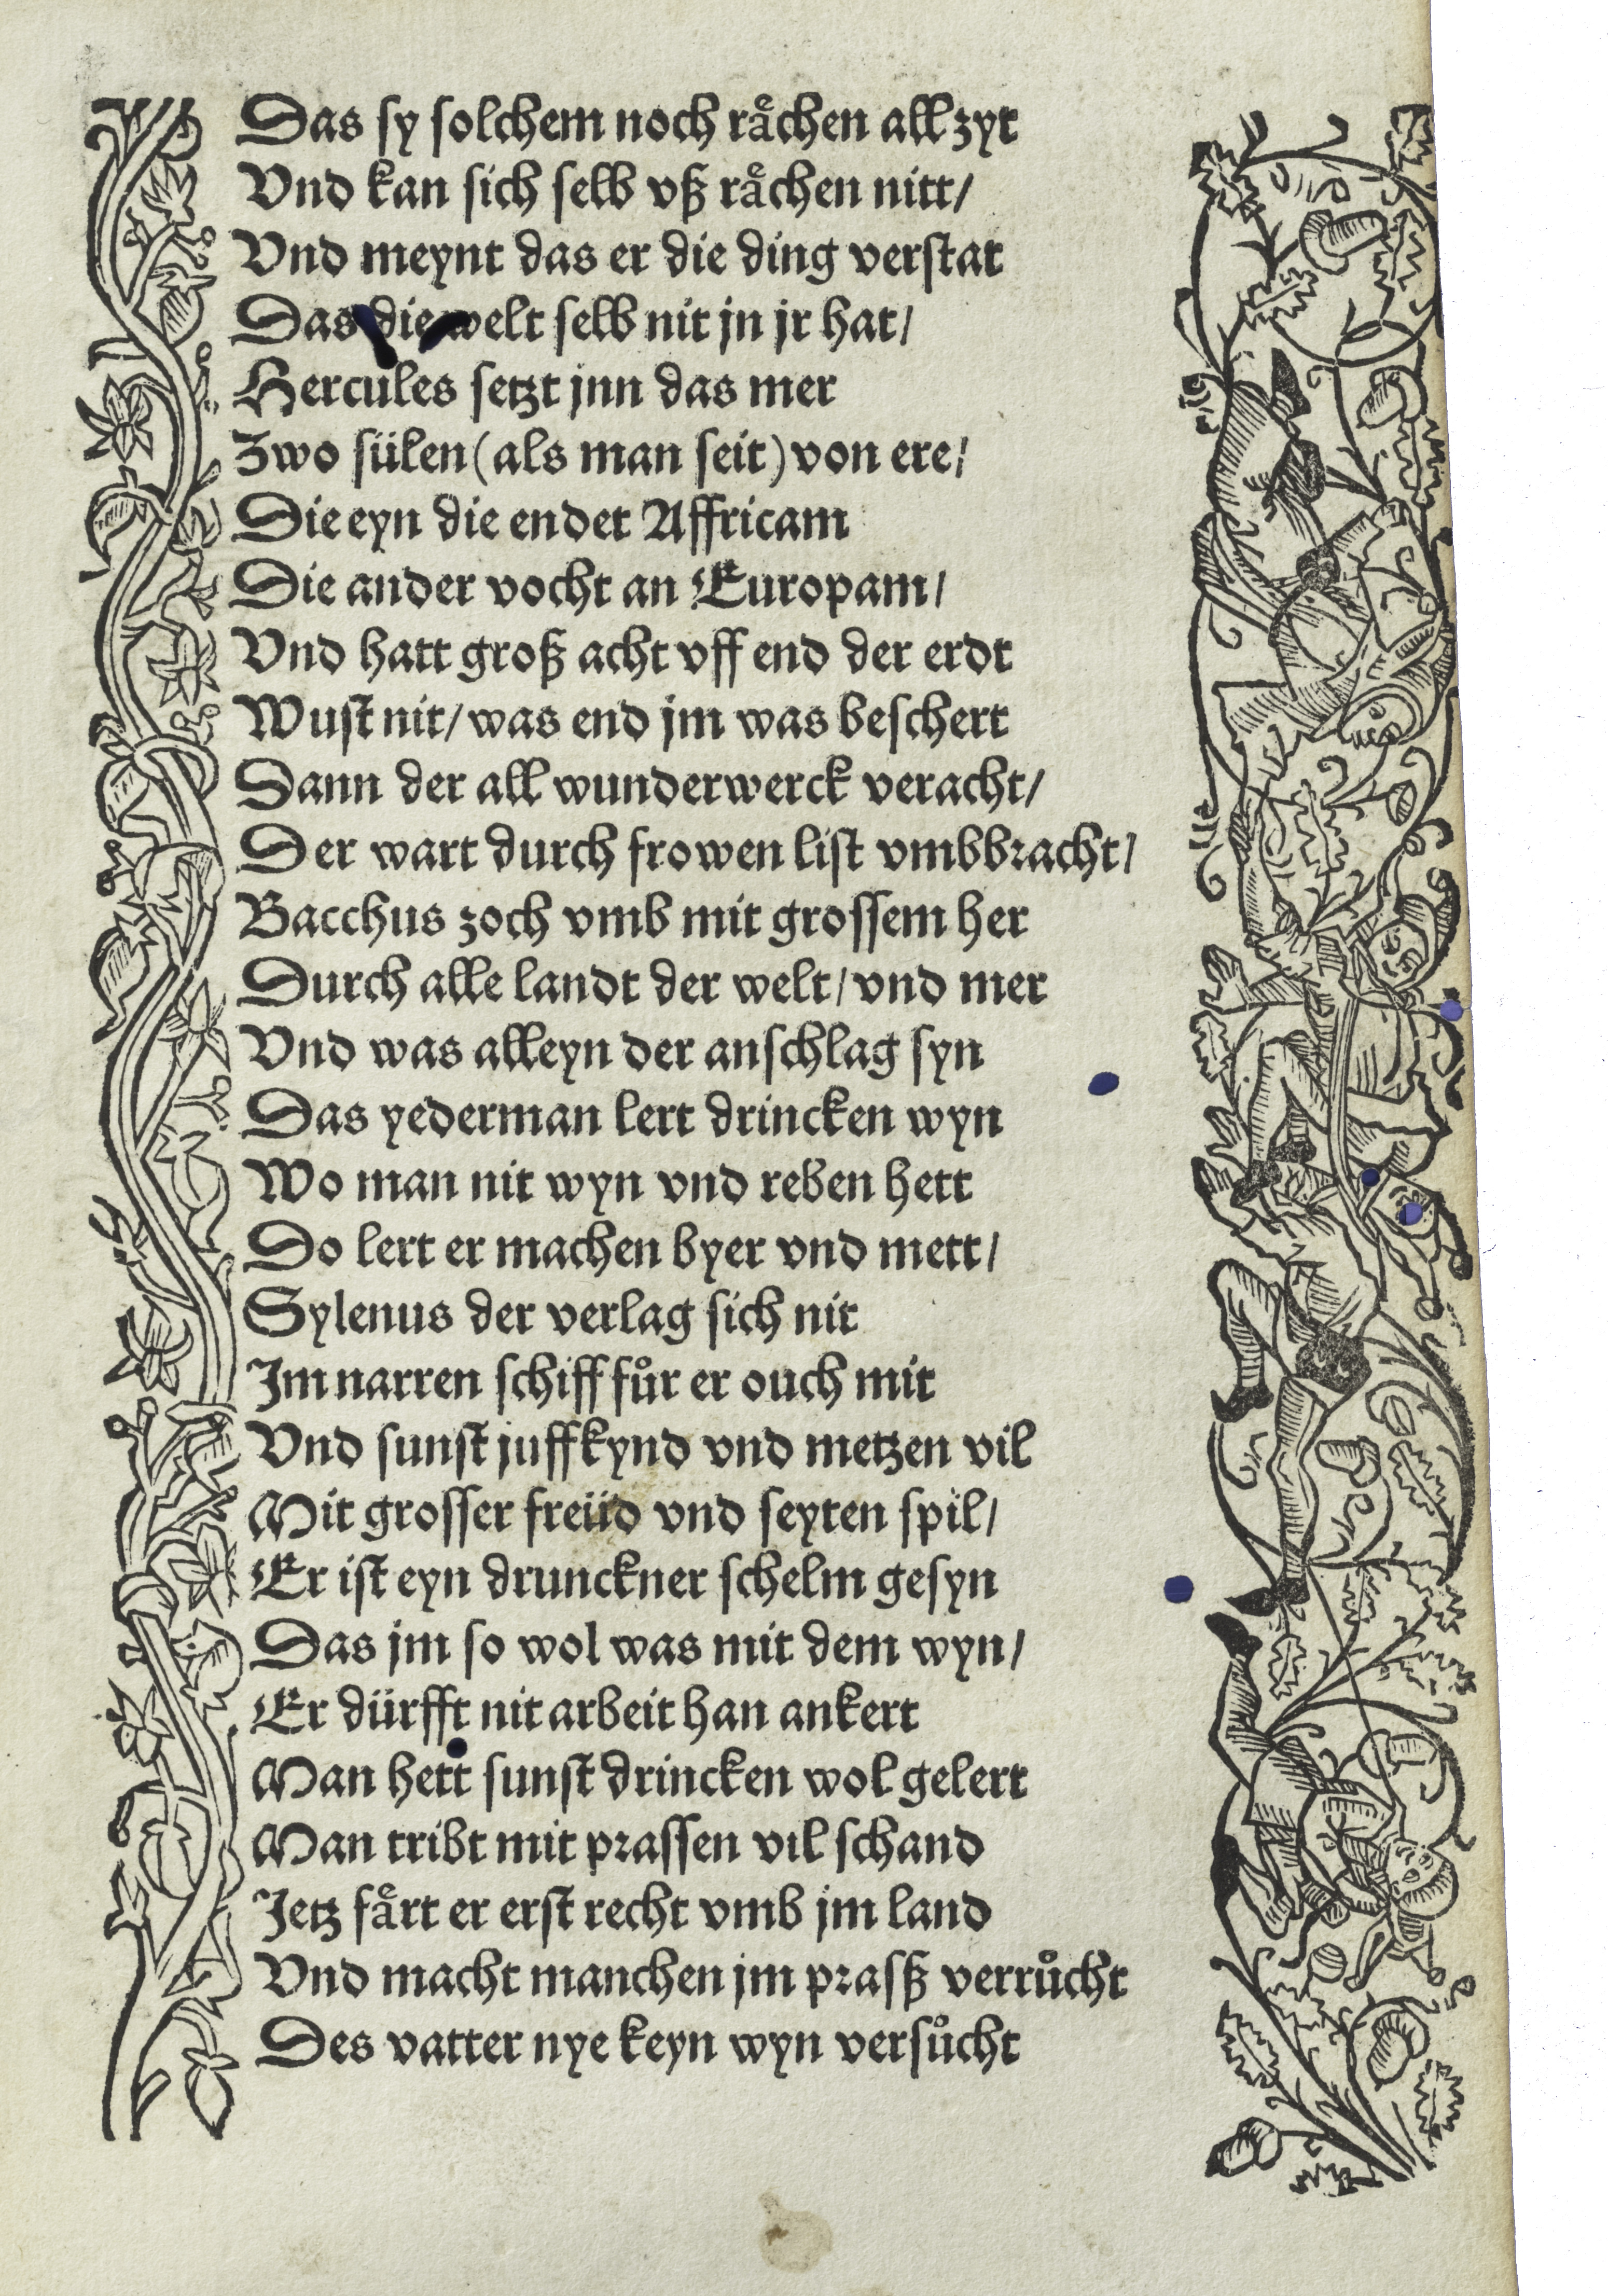 Das sy solchem noch raͤchen all zyt
Vnd kan sich selb vß raͤchen nitt/
Vnd meynt das er die ding verstat
Das die welt selb nit jn jr hat/
Hercules setzt jnn das mer
Zwo sülen (als man seit) von ere/
Die eyn die endet Affricam
Die ander vocht an Europam/
Vnd hatt groß acht vff end der erdt
Wust nit/ was end jm was beschert
Dann der all wunderwerck veracht/
Der wart durch frowen list vmbbracht/
Bacchus zoch vmb mit grossem her
Durch alle landt der welt/ vnd mer
Vnd was alleyn der anschlag syn
Das yederman lert drincken wyn
Wo man nit wyn vnd reben hett
Do lert er machen byer vnd mett/
Sylenus der verlag sich nit
Im narren schiff fuͦr er ouch mit
Vnd sunst juffkynd vnd metzen vil
Mit grosser freüd vnd seyten spil/
Er ist eyn drunckner schelm gesyn
Das jm so wol was mit dem wyn/
Er dürfft nit arbeit han ankert
Man hett sunst drincken wol gelert
Man tribt mit prassen vil schand
Jetz faͤrt er erst recht vmb jm land
Vnd macht manchen jm prasß verruͦcht
Des vatter nye keyn wyn versuͦcht